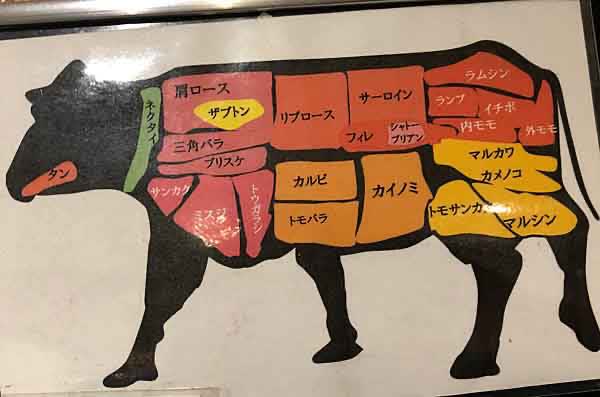 肩ロース
ザブトン
ネクタイ
三角バラ
ブリスケ
タン
サンカク
ミスジ
トウガラシ
リブロース
サーロイン
フィレ
シャトー
ブリアン
カルビ
トモバラ
カイノミ
ラムシン
ランプ
イチボ
内モモ
外モモ
マルカワ
カメノコ
トモサンカク
マルシン